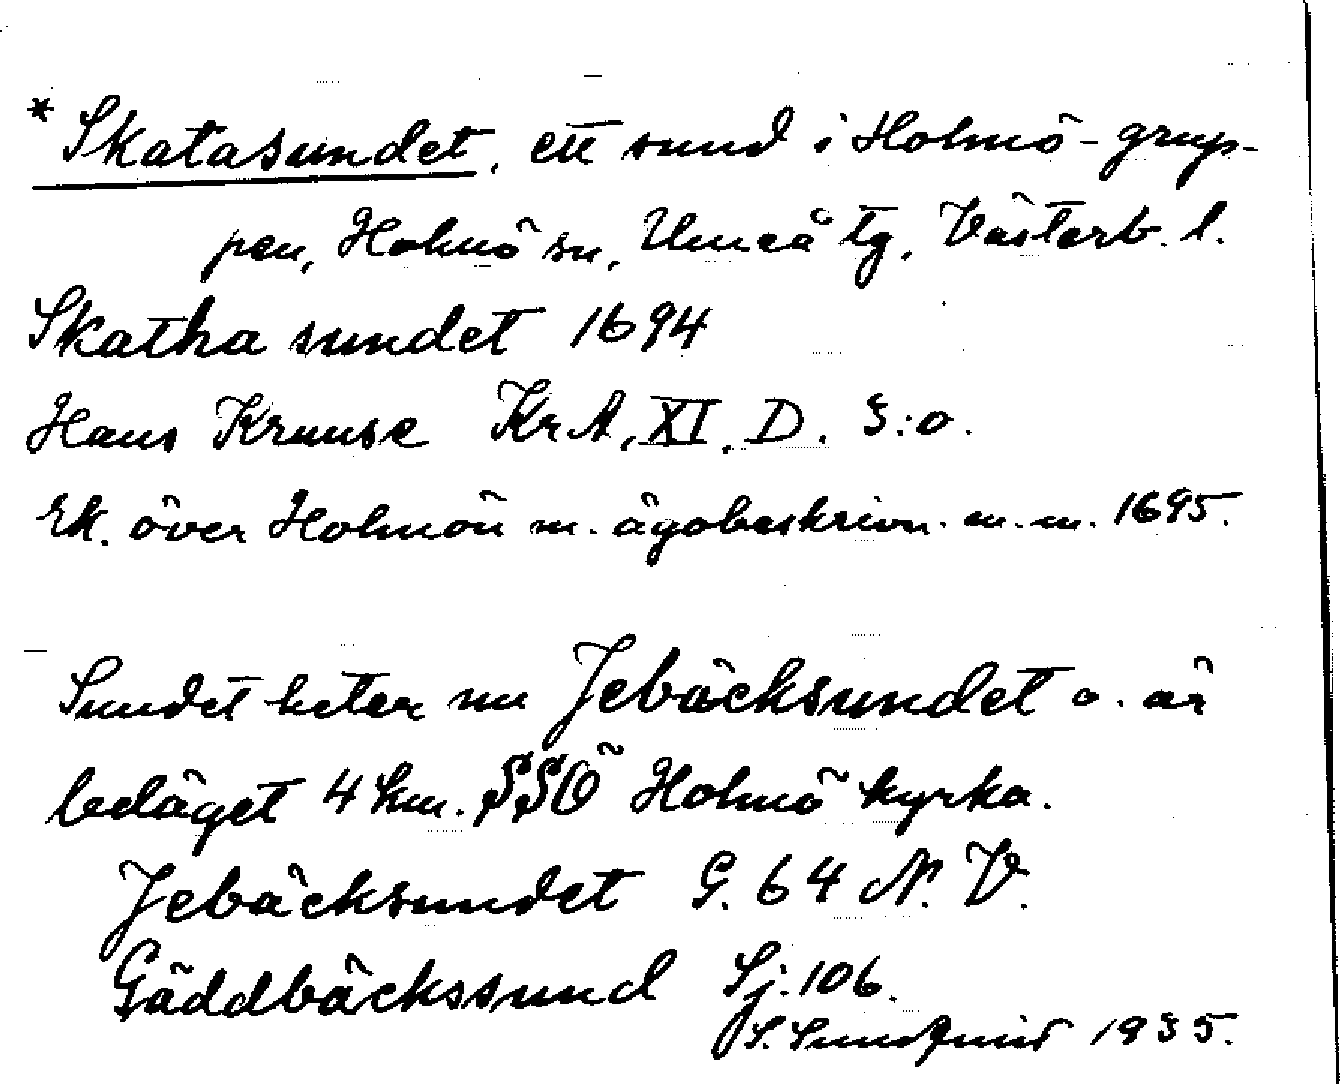 * Skatasundet, ett sund i Holmö-grup-
pen, Holmö sn, Umeå tg, Västerb. l.
Skatha sundet 1694
Hans Kruuse KrA, XI, D. 3:o.
Ek. över Holmön m. ägobeskrivn. m.m. 1695.
Sundet heter nu Jebäcksundet o. är
beläget 4 km. SSÖ Holmö kyrka.
Jebäcksundet G. 64 N.V.
Gäddbäckssund Sj. 106.
S. Sundqvist 1935.